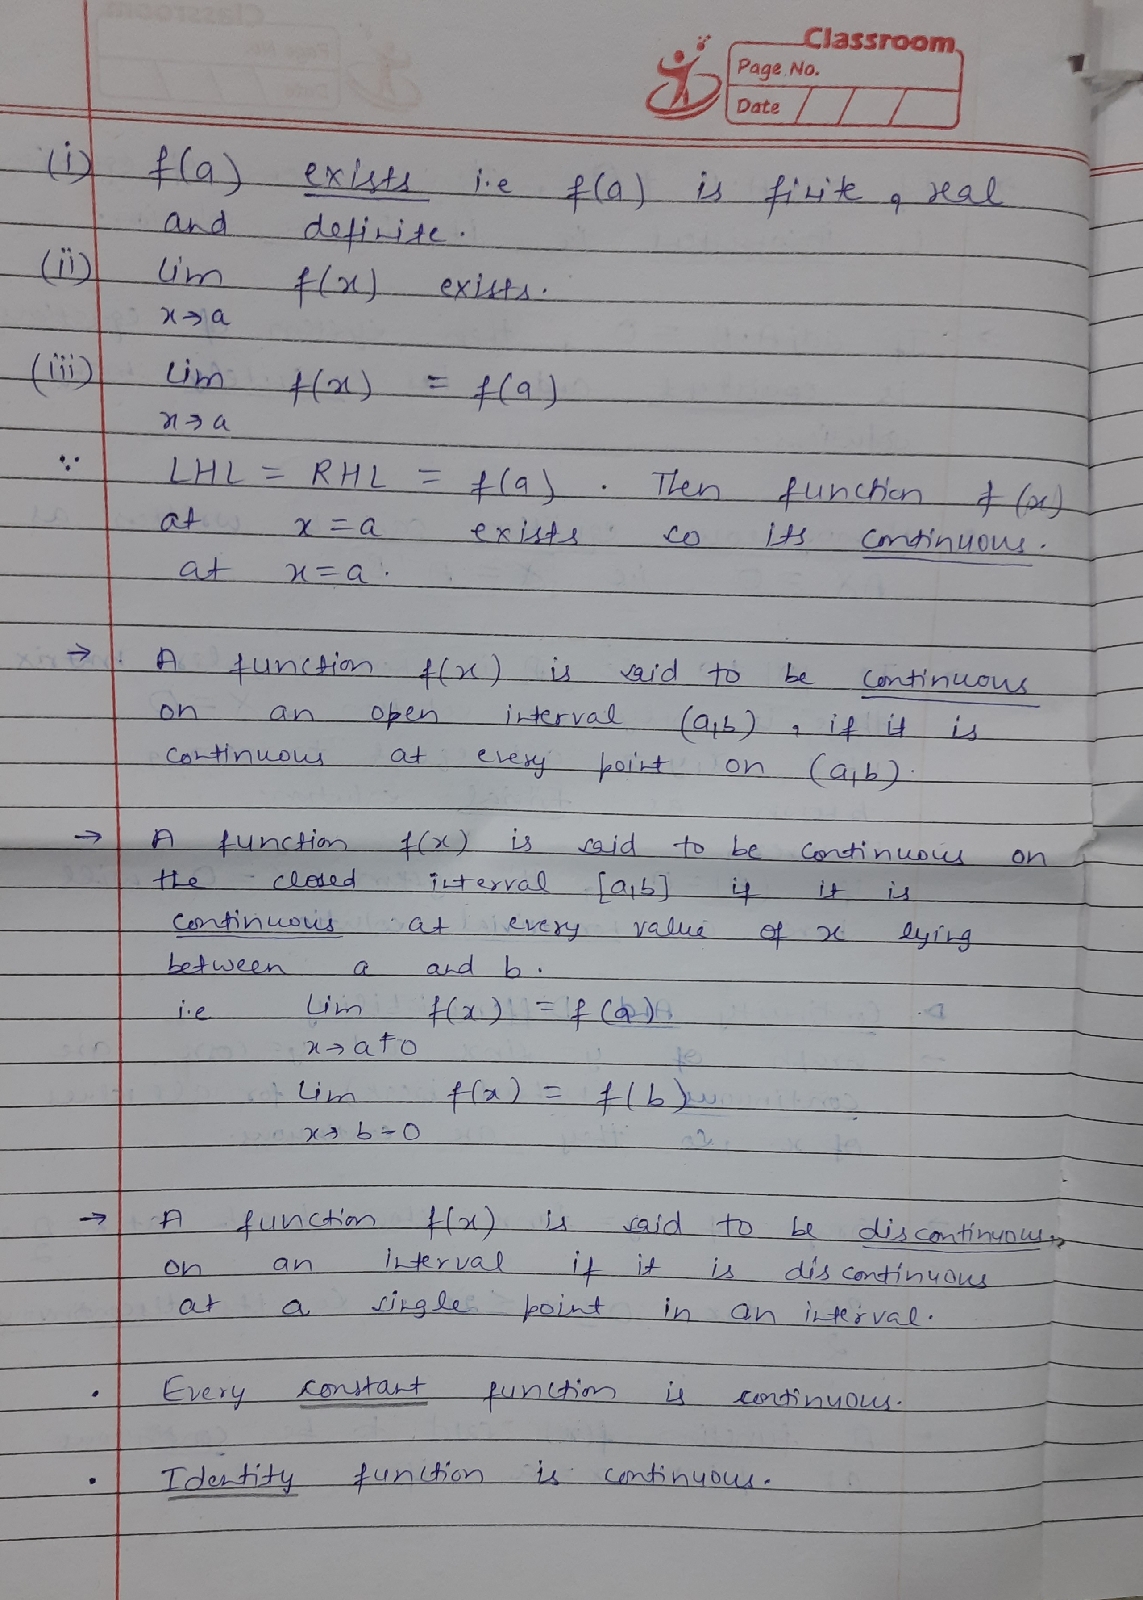 Classroom
Page No.
Date / / /
(i) f(a) exists i.e f(a) is finite, real
and definite.
(ii) lim f(x) exists.
x→a
(iii) lim f(x) = f(a)
x→a
∵ LHL = RHL = f(a). Then function f(x)
at x=a exists so its continuous.
at x=a.
→ A function f(x) is said to be continuous
on an open interval (a,b), if it is
continuous at every point on (a,b).
→ A function f(x) is said to be continuous on
the closed interval [a,b] if it is
continuous at every value of x lying
between a and b.
i.e lim f(x) = f(a)
x→a+0
lim f(x) = f(b)
x→b-0
→ A function f(x) is said to be discontinuous
on an interval if it is discontinuous
at a single point in an interval.
• Every constant function is continuous.
• Identity function is continuous.